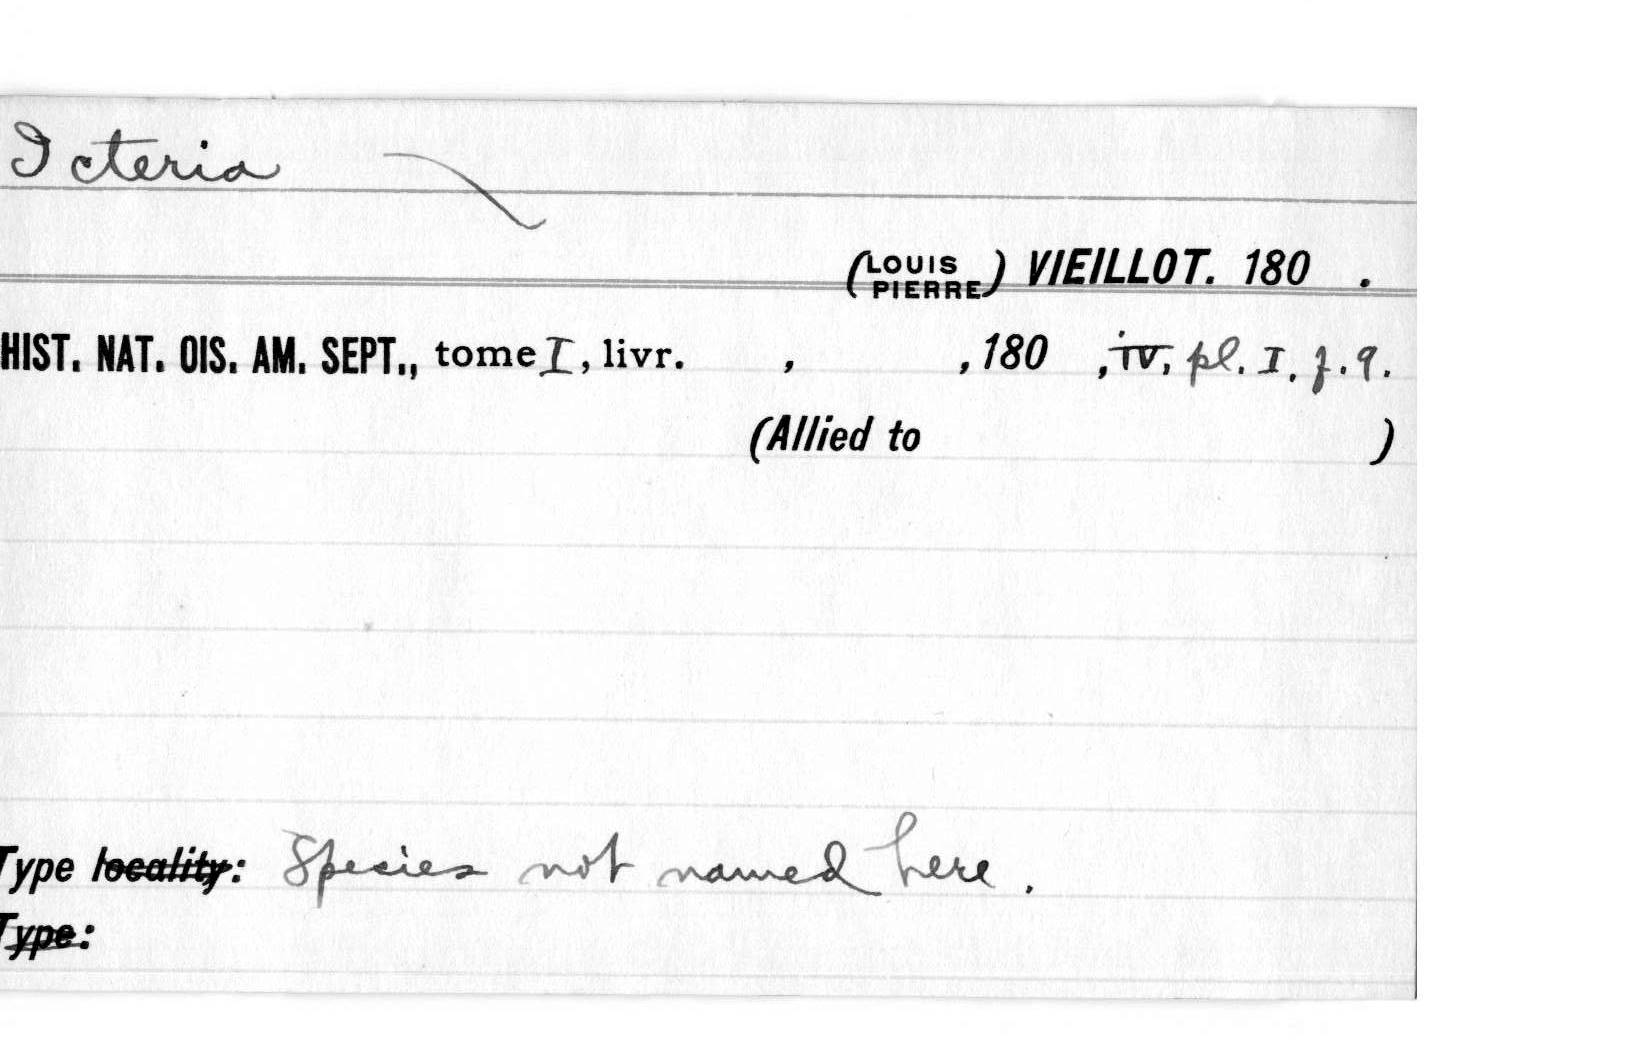 Icteria
(LOUIS PIERRE) VIEILLOT. 180 .
HIST. NAT. OIS. AM. SEPT., tome I, livr. , , 180 , iv, pl. I. f. 9.
(Allied to )
Type locality: Species not named here.
Type: